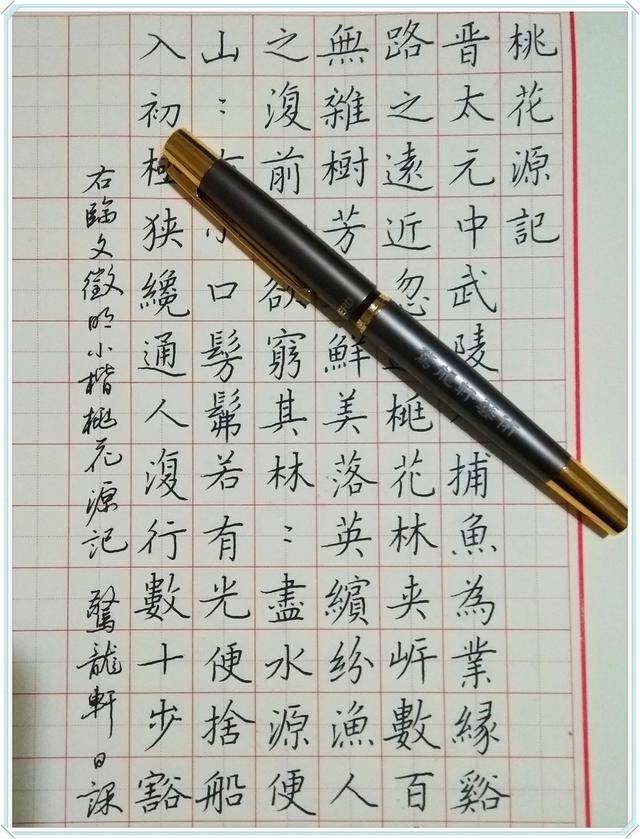 桃花源記
晉太元中武陵捕魚為業緣谿
路之遠近忽桃花林夾岸數百
無雜樹芳鮮美落英繽紛漁人
之復前欲窮其林：盡水源便
山：有小口髣髴若有光便捨船
入初極狹纔通人復行數十步豁
右臨文徵明小楷桃花源記 驚龍軒日課
驚龍軒藝術